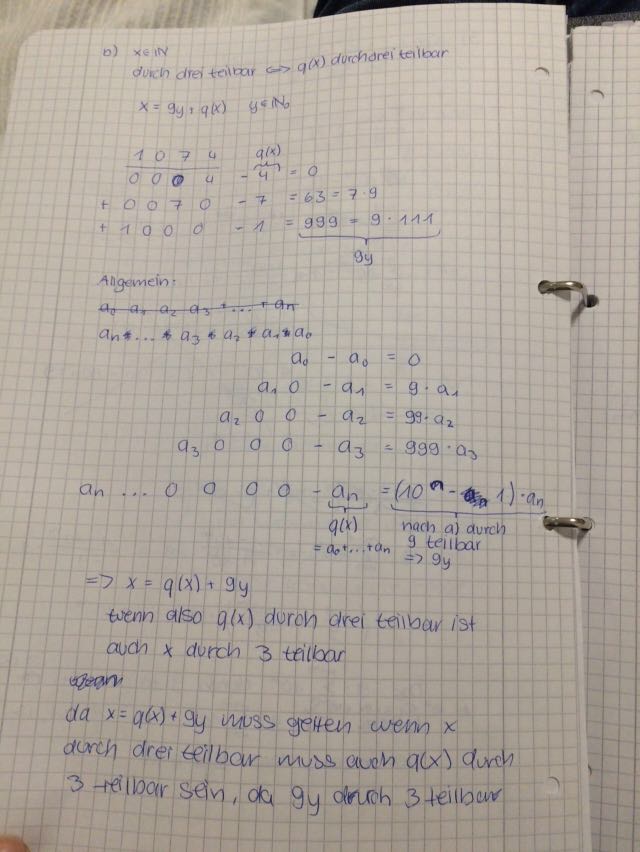 b) x∈ℕ
durch drei teilbar <=> q(x) durch drei teilbar
x = 9y + q(x) y∈ℕ₀
1 0 7 4 q(x)
0 0 0 4 - 4 = 0
+ 0 0 7 0 - 7 = 63 = 7·9
+ 1 0 0 0 - 1 = 999 = 9·111
9y
Allgemein:
a₀ a₁ a₂ a₃ + ... + an
an + ... + a₃ + a₂ + a₁ + a₀
a₀ - a₀ = 0
a₁ 0 - a₁ = 9·a₁
a₂ 0 0 - a₂ = 99·a₂
a₃ 0 0 0 - a₃ = 999·a₃
an ... 0 0 0 0 - an = (10ⁿ - 1)·an
q(x) nach a) durch
= a₀+...+an 9 teilbar
=> 9y
=> x = q(x) + 9y
wenn also q(x) durch drei teilbar ist
auch x durch 3 teilbar
da x = q(x) + 9y muss gelten wenn x
durch drei teilbar muss auch q(x) durch
3 teilbar sein, da 9y durch 3 teilbar